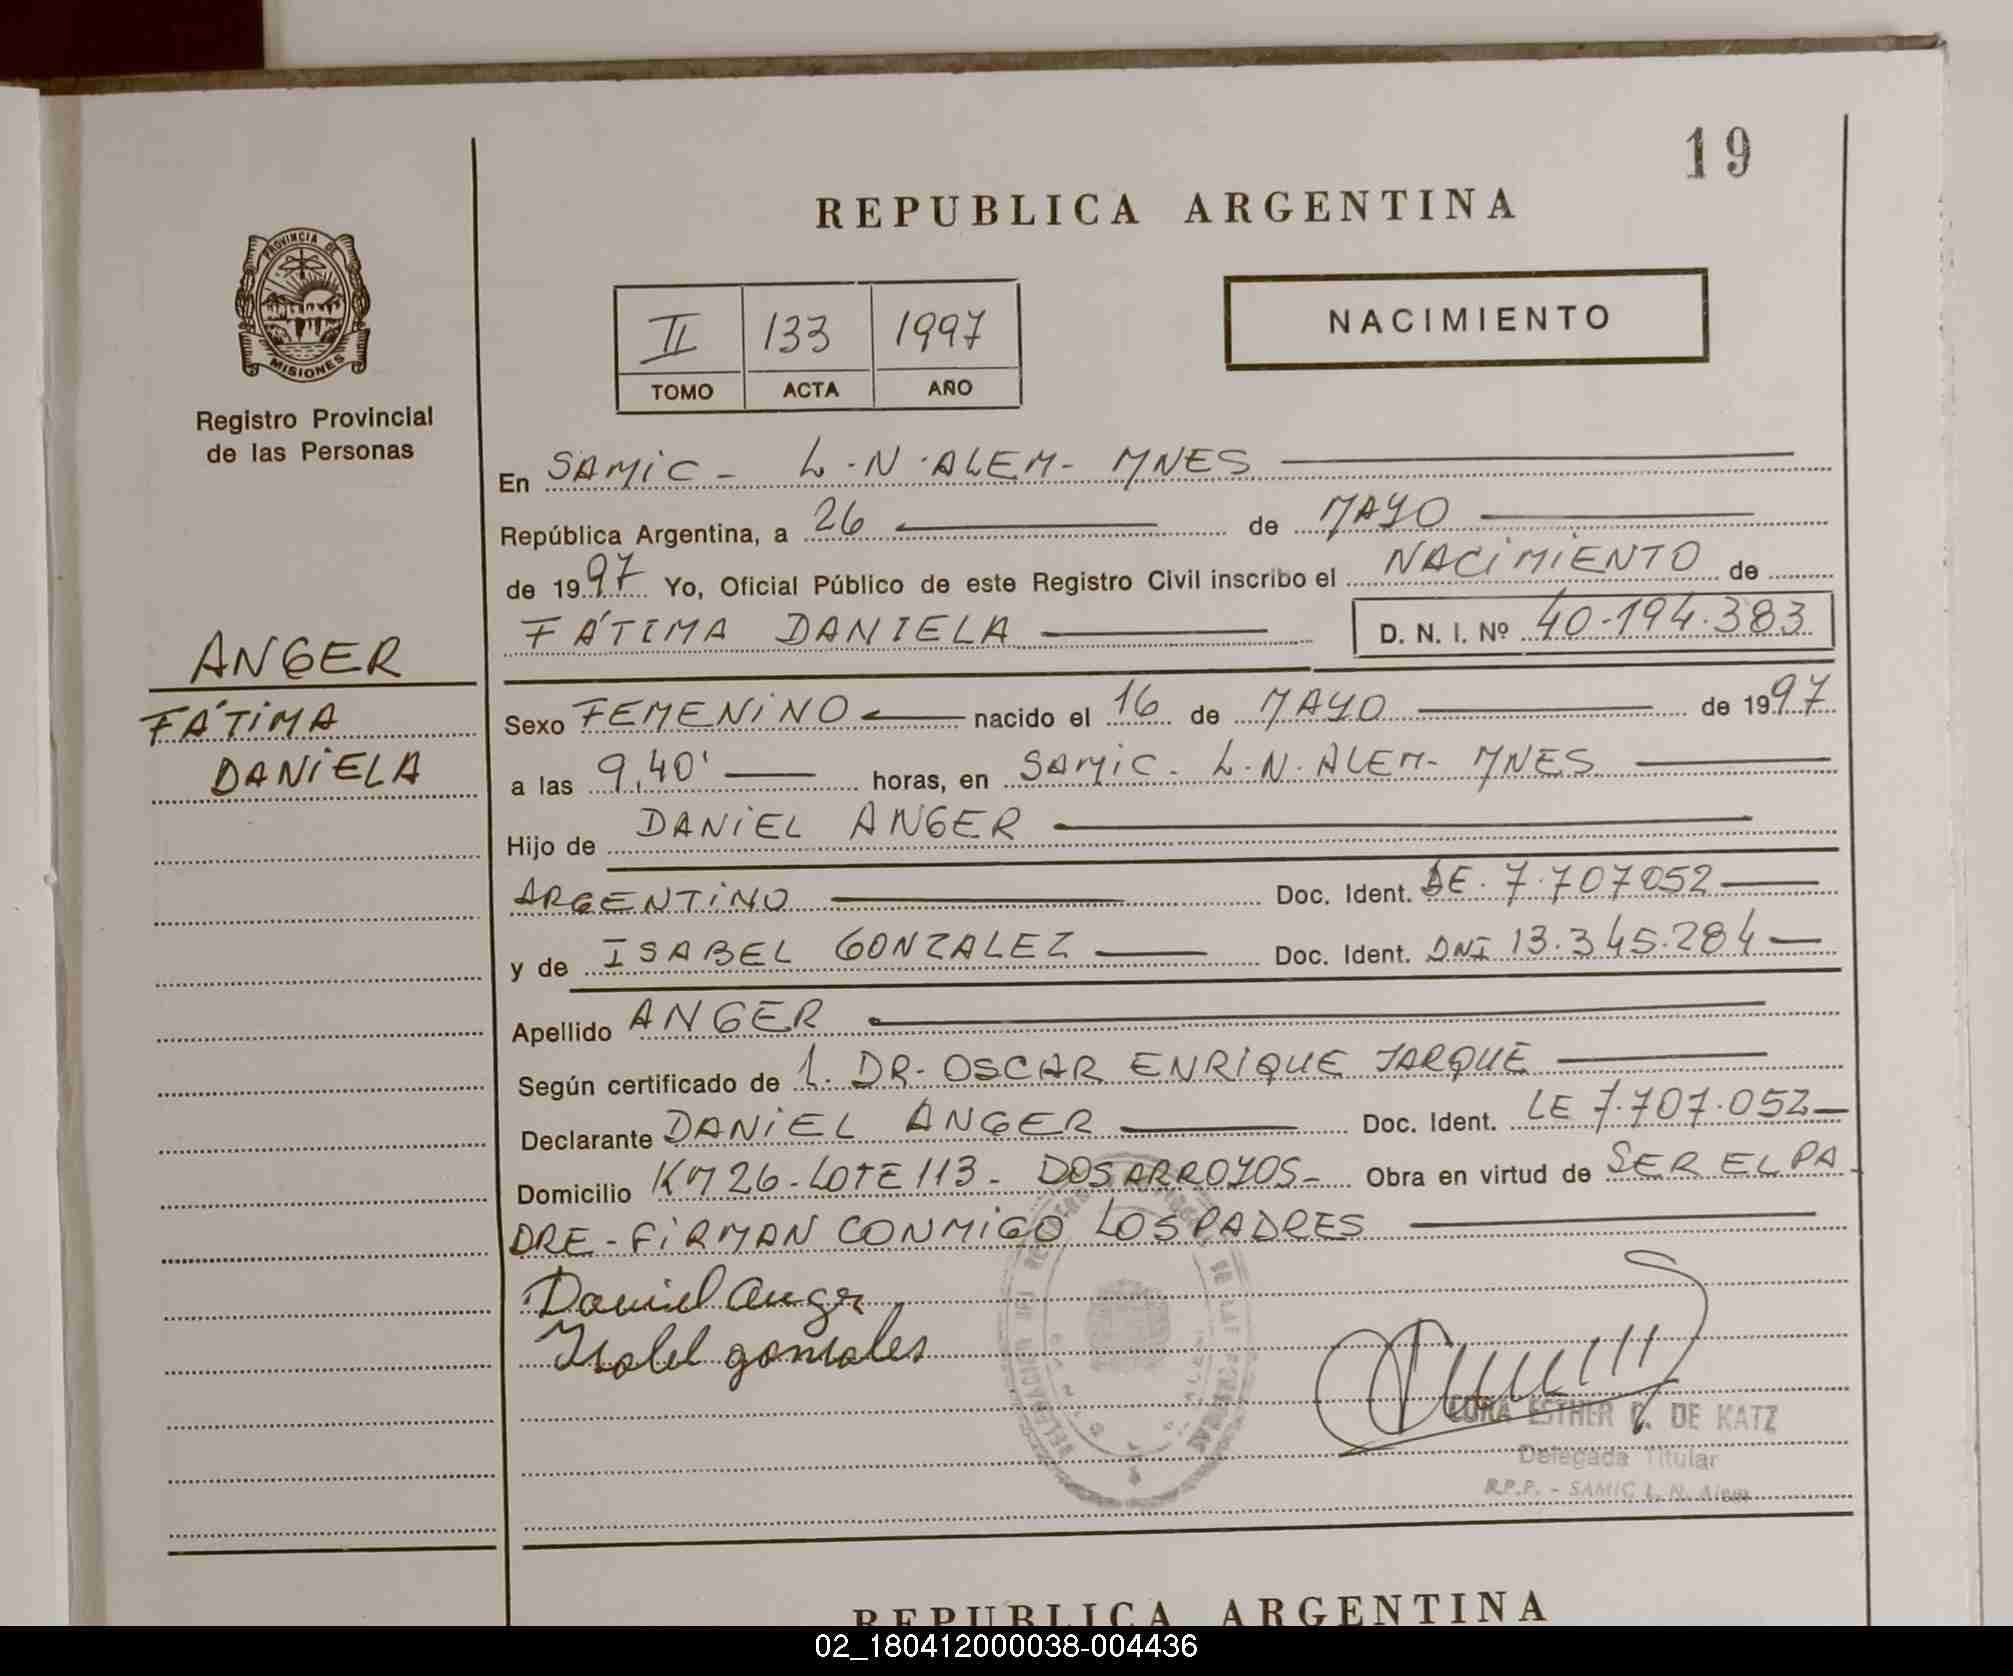 19
REPUBLICA ARGENTINA
PROVINCIA DE
MISIONES
Registro Provincial
de las Personas
II 133 1997
TOMO ACTA AÑO
NACIMIENTO
En SAMIC - L.N.ALEM- MNES
República Argentina, a 26 de MAYO
de 1997 Yo, Oficial Público de este Registro Civil inscribo el NACIMIENTO de
FÁTIMA DANIELA D. N. I. Nº 40.194.383
ANGER
FÁTIMA
DANIELA
Sexo FEMENINO nacido el 16 de MAYO de 1997
a las 9,40' horas, en SAMIC - L.N.ALEM- MNES
Hijo de DANIEL ANGER
ARGENTINO Doc. Ident. LE. 7.707052
y de ISABEL GONZALEZ Doc. Ident. DNI 13.345.284
Apellido ANGER
Según certificado de 1. DR. OSCAR ENRIQUE JARQUE
Declarante DANIEL ANGER Doc. Ident. LE 7.707.052
Domicilio KM 26 - LOTE 113 - DOS ARROYOS - Obra en virtud de SER EL PA
DRE - FIRMAN CONMIGO LOS PADRES
Daniel Anger
Isabel gonsales
ESTHER DE KATZ
Delegada Titular
R.P.P. - SAMIC L. N. Alem
REPUBLICA ARGENTINA
02_180412000038-004436